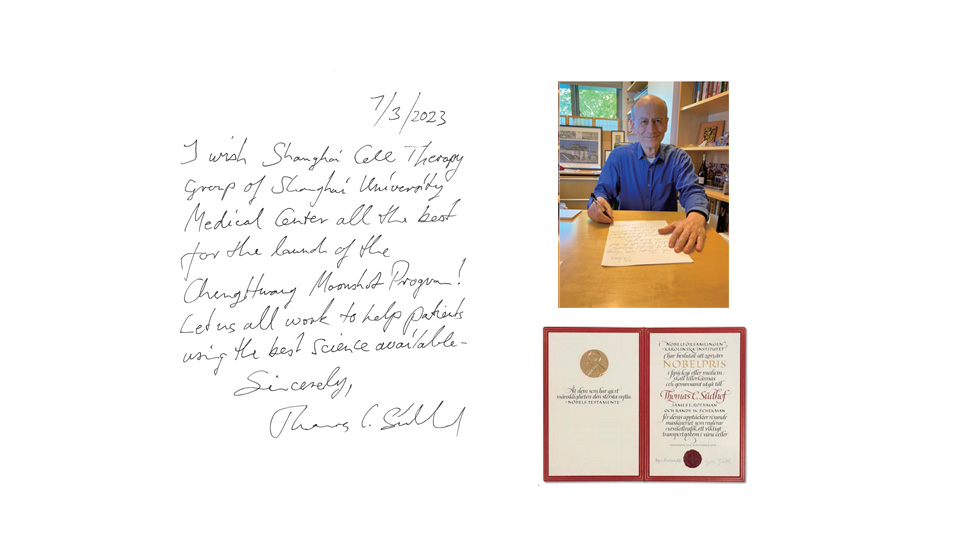 7/3/2023
I wish Shanghai Cell Therapy
Group of Shanghai University
Medical Center all the best
for the launch of the
ChengHwang Moonshot Program!
Let us all work to help patients
using the best science available-
Sincerely,
Thomas C. Südhof
NOBELFÖRSAMLINGEN
KAROLINSKA INSTITUTET
har beslutat att 2013 års
NOBELPRIS
i fysiologi eller medicin
skall tillerkännas
och gemensamt utgå till
Thomas C. Südhof
JAMES E. ROTHMAN
OCH RANDY W. SCHEKMAN
för deras upptäckter rörande
maskineriet som reglerar
vesikeltrafik, ett viktigt
transportsystem i våra celler
Åt dem som har gjort
mänskligheten den största nytta
NOBELS TESTAMENTE